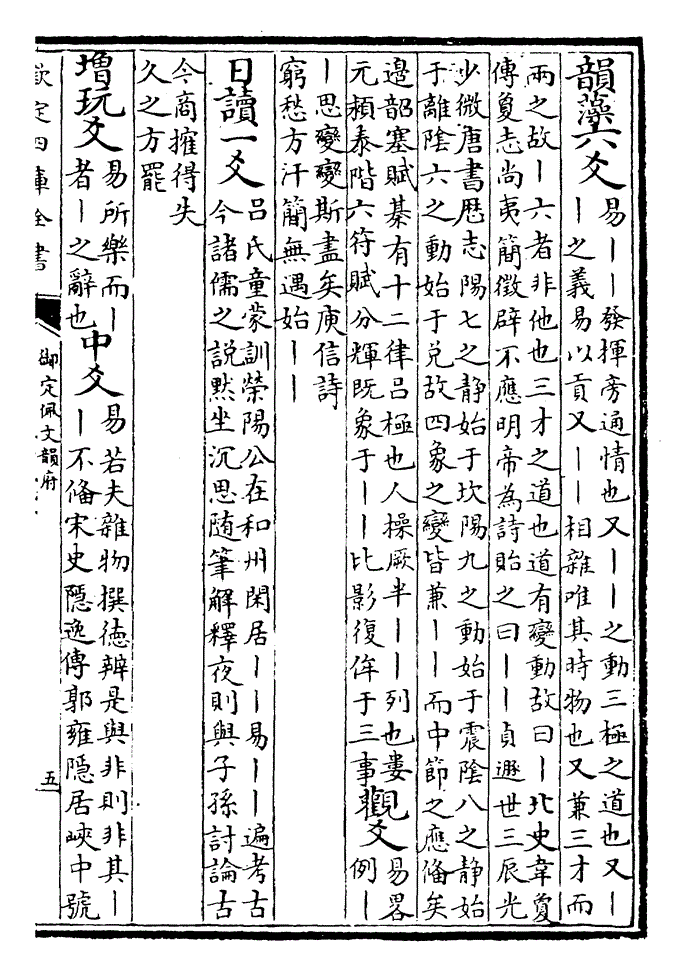 韻藻六爻
易丨丨發揮旁通情也又丨丨之動三極之道也又丨
丨之義易以貢又丨丨相雜唯其時物也又兼三才而
兩之故丨六者非他也三才之道也道有變動故曰丨北史韋敻
傳敻志尚夷簡徵辟不應明帝為詩貽之曰丨丨貞遯世三辰光
少微唐書厯志陽七之静始于坎陽九之動始于震陰八之静始
于離陰六之動始于兌故四象之變皆兼丨丨而中節之應備矣
邊韶塞賦棊有十二律呂極也人操厥半丨丨列也婁
元頴泰階六符賦分輝既象于丨丨比影復侔于三事
觀爻
易畧
例丨
丨思變變斯盡矣庾信詩
窮愁方汗簡無遇始丨丨
日讀一爻
呂氏童蒙訓榮陽公在和州閑居丨丨易丨丨遍考古
今諸儒之說黙坐沉思隨筆解釋夜則與子孫討論古
今商搉得失
久之方罷
增玩爻
易所樂而丨
者丨之辭也
中爻
易若夫雜物撰徳辨是與非則非其丨
丨不備宋史隱逸傳郭雍隱居峽中號
欽定四庫全書
御定佩文韻府
五